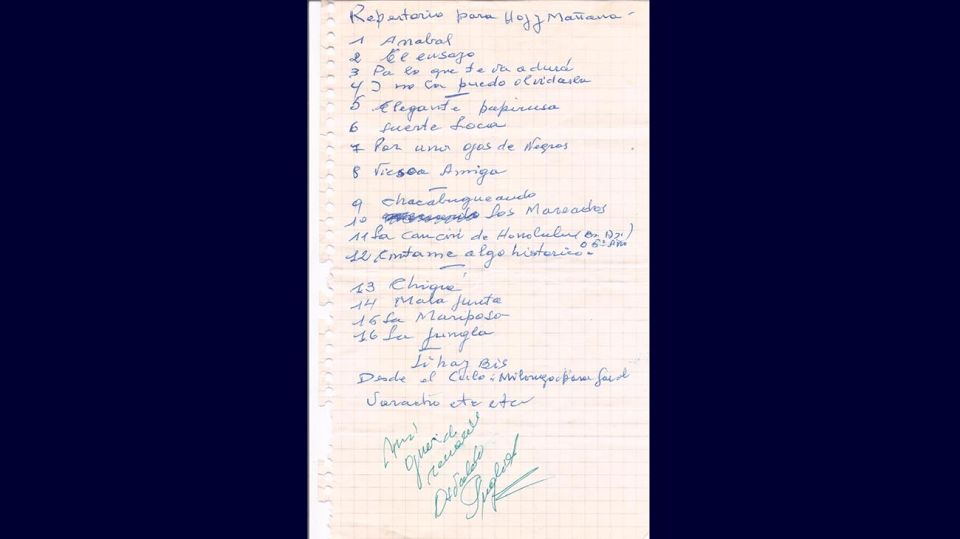 Repertorio para Hoy y Mañana -
1 Anabal
2 El ensayo
3 Pa lo que te va a durá
4 I no la puedo olvidarla
5 Elegante papirusa
6 Suerte Loca
7 Por unos ojos de Negros
8 Vieja Amiga
9 Chacabuqueando
10 Los Mareados
11 La Canción de Honolulu
12 Contame algo historico -
13 Chiqué
14 Mala junta
15 La Mariposa
16 La Jungla
Si hay Bis
Desde el Cielo: Milonga para
etc etc
Osvaldo